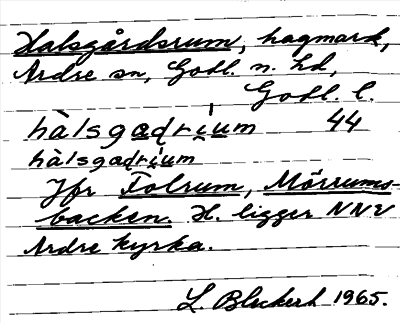 Halsgårdsrum, hagmark,
Ardre sn, Gotl. n. hd,
Gotl. l.
hàlsgadrium 44
hàlsgadrium
Jfr Folrum, Mörrums-
backen. H. ligger NNV
Ardre kyrka.
L. 1965.